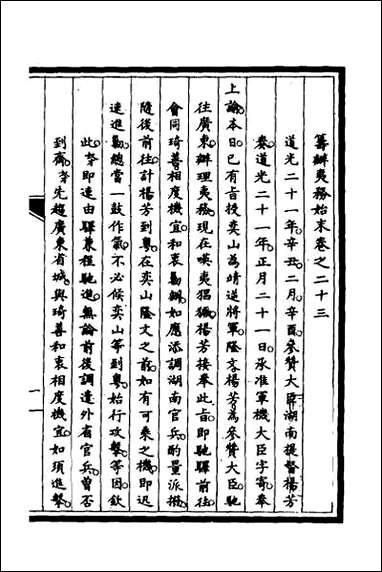 籌辦夷務始末卷之二十三
道光二十一年辛丑二月辛酉參贊大臣湖南提督楊芳
奏道光二十一年正月二十一日承准軍機大臣字寄奉
上諭本日已有旨授奕山為靖逆將軍隆文楊芳為參贊大臣馳
往廣東辦理夷務現在嘆夷猖獗楊芳接奉此旨即馳驛前往
會同琦善相度機宜和衷勦辦如應添調湖南官兵酌量派撥
隨後前往計楊芳到粵在奕山隆文之前如有可乘之機即迅
速進勦總當一鼓作氣不必候奕山等到粵始行攻擊等因欽
此奴即速由驛兼程馳進無論前後調遣外省官兵曾否
到齊奴先趨廣東省城與琦善和衷相度機宜如須進擊
一